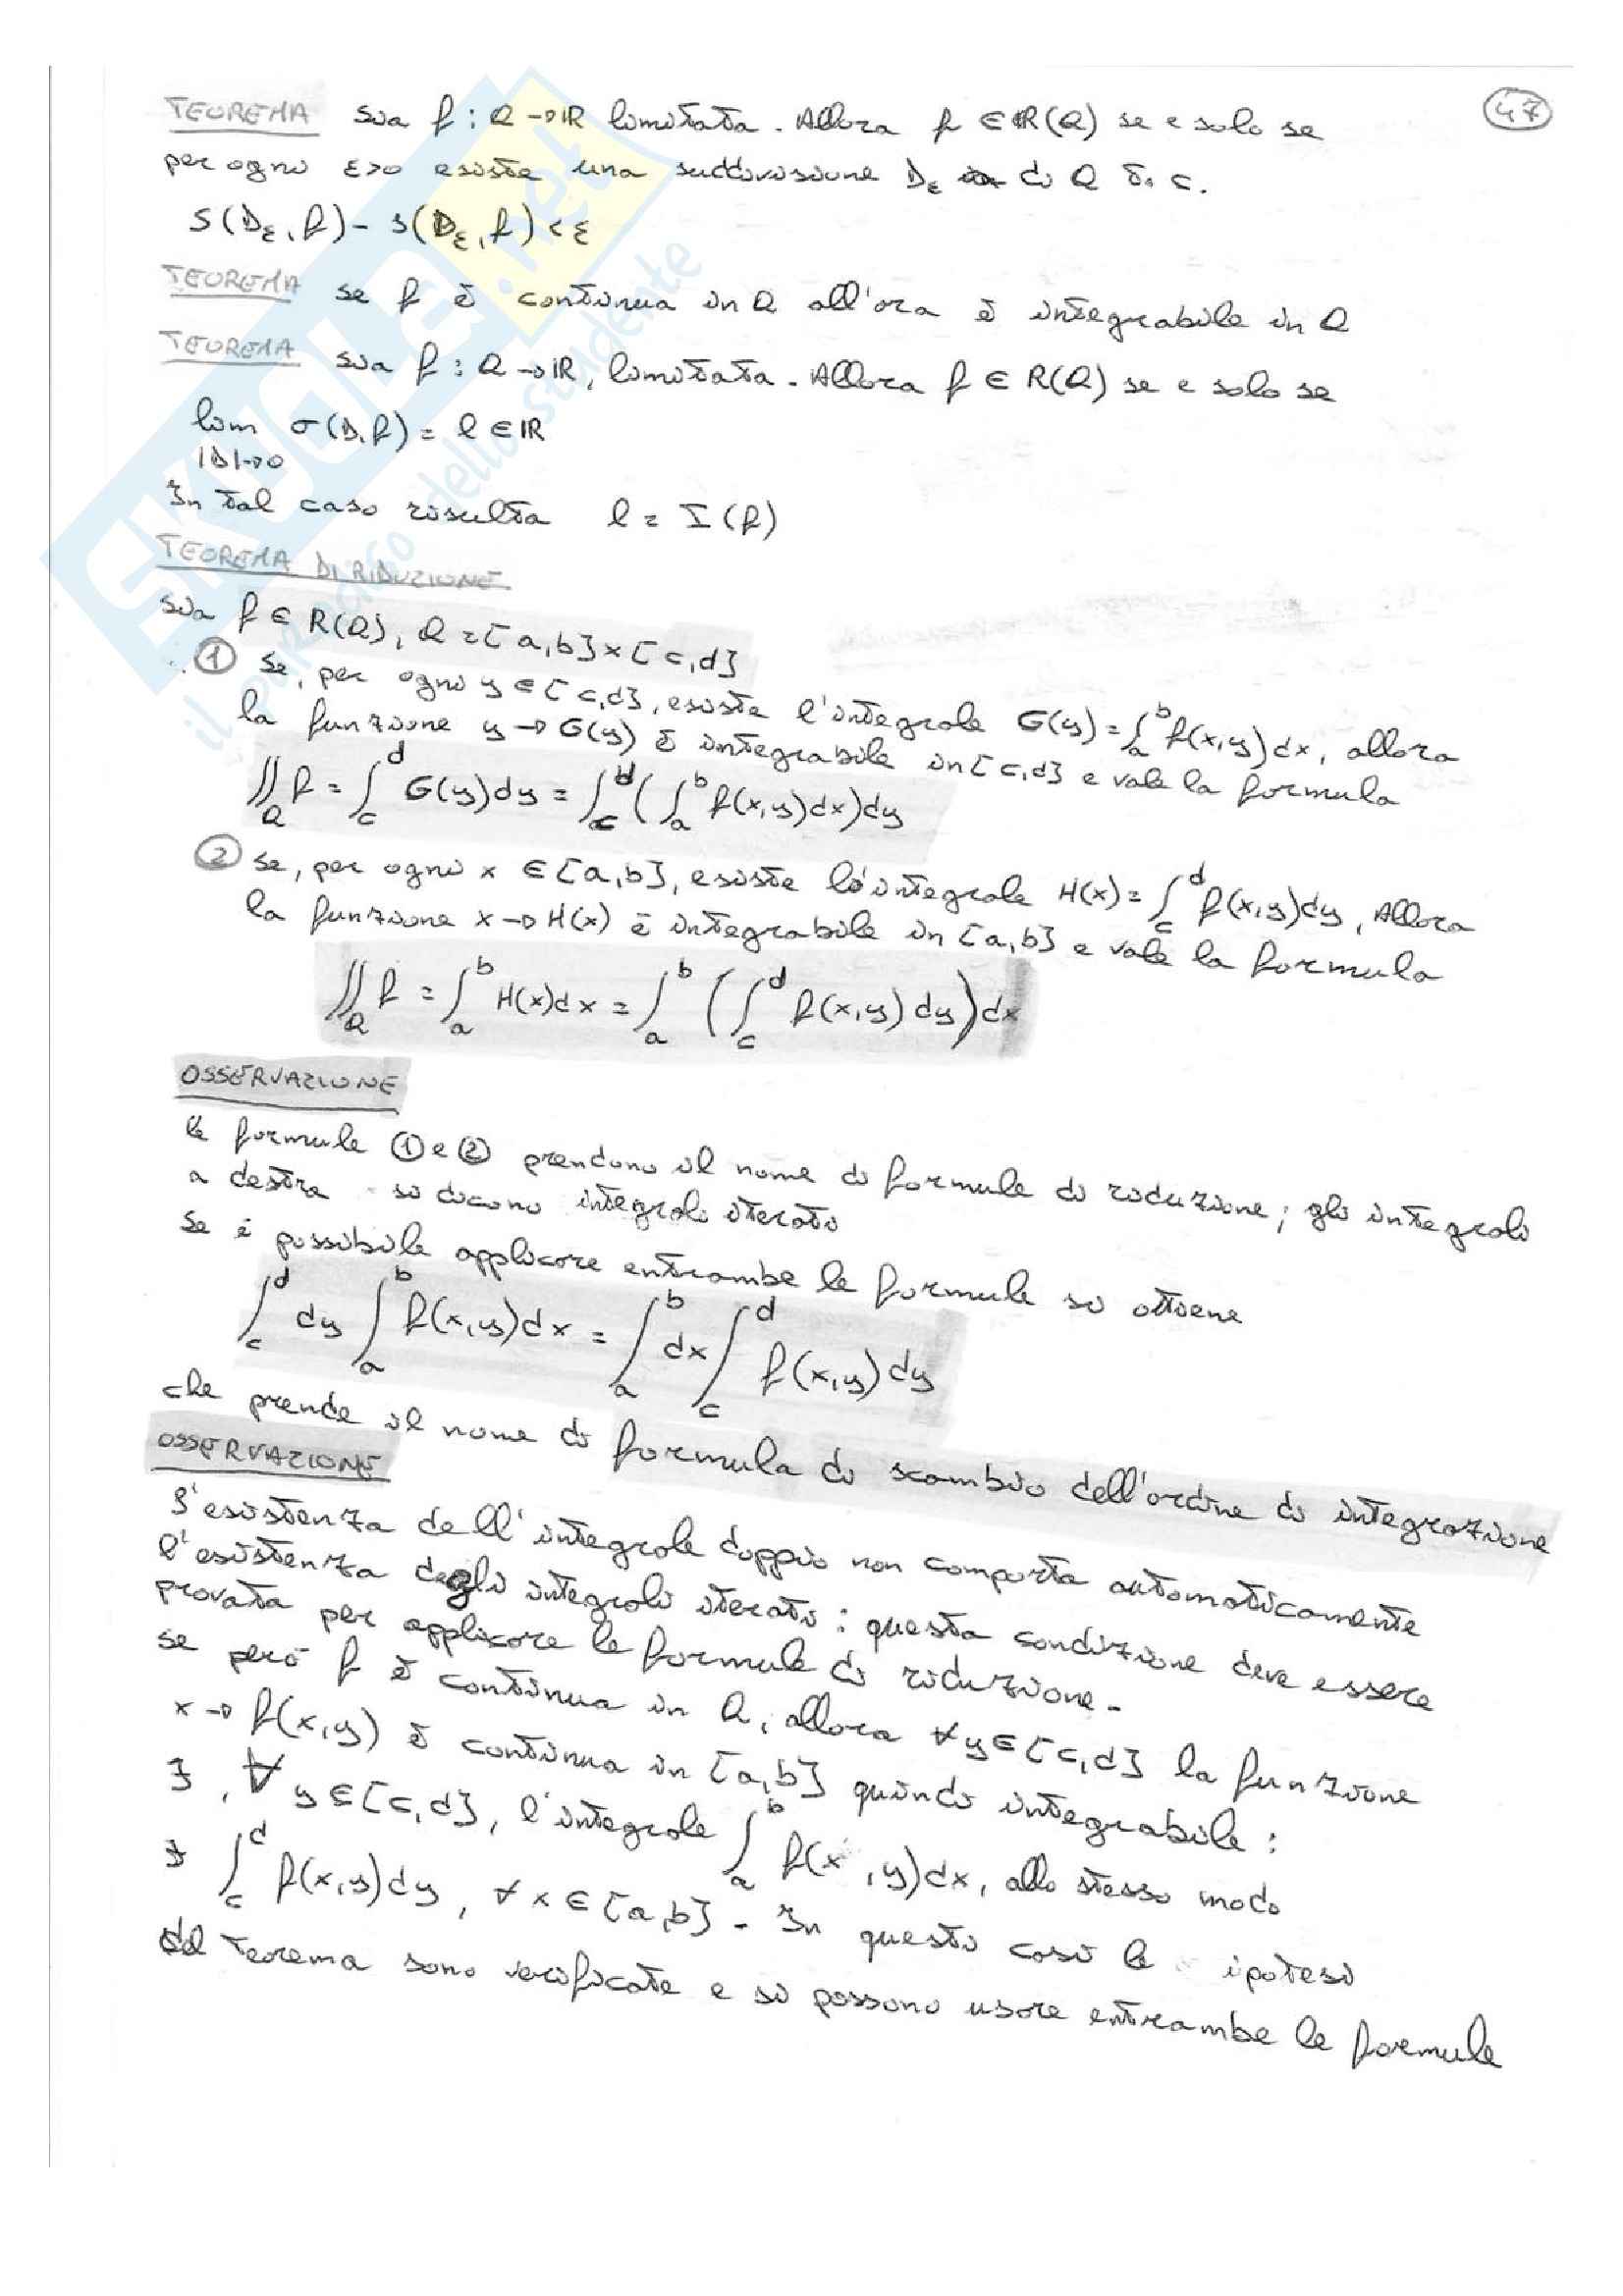 47
TEOREMA sia f : Q → ℝ limitata. Allora f ∈ R(Q) se e solo se
per ogni ε>0 esiste una suddivisione Dε di Q t. c.
S(Dε, f) - s(Dε, f) < ε
TEOREMA se f è continua in Q all'ora è integrabile in Q
TEOREMA sia f : Q → ℝ, limitata. Allora f ∈ R(Q) se e solo se
lim σ(D, f) = l ∈ ℝ
|D|→0
In tal caso risulta l = I(f)
TEOREMA DI RIDUZIONE
sia f ∈ R(Q), Q = [a,b] × [c,d]
① se, per ogni y ∈ [c,d], esiste l'integrale G(y) = ∫_a^b f(x,y)dx, allora
la funzione y → G(y) è integrabile in [c,d] e vale la formula
∬_Q f = ∫_c^d G(y)dy = ∫_c^d (∫_a^b f(x,y)dx)dy
② se, per ogni x ∈ [a,b], esiste l'integrale H(x) = ∫_c^d f(x,y)dy, Allora
la funzione x → H(x) è integrabile in [a,b] e vale la formula
∬_Q f = ∫_a^b H(x)dx = ∫_a^b (∫_c^d f(x,y)dy)dx
OSSERVAZIONE
le formule ① e ② prendono il nome di formule di riduzione; gli integrali
a destra si dicono integrali iterati
se è possibile applicare entrambe le formule si ottiene
∫_c^d dy ∫_a^b f(x,y)dx = ∫_a^b dx ∫_c^d f(x,y)dy
che prende il nome di formula di scambio dell'ordine di integrazione
OSSERVAZIONE
L'esistenza dell'integrale doppio non comporta automaticamente
l'esistenza degli integrali iterati: questa condizione deve essere
provata per applicare le formule di riduzione.
se però f è continua in Q, allora ∀y∈[c,d] la funzione
x → f(x,y) è continua in [a,b] quindi integrabile:
∃, ∀ y∈[c,d], l'integrale ∫_a^b f(x,y)dx, allo stesso modo
∃ ∫_c^d f(x,y)dy, ∀ x∈[a,b]. In questi casi le ipotesi
del Teorema sono verificate e si possono usare entrambe le formule
SKUOLA.net
il paradiso dello studente